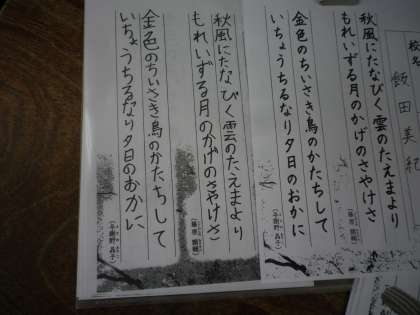 名
飯田美紀
秋風にたなびく雲のたえまより
もれいずる月のかげのさやけさ
（藤原 顕輔）
金色のちいさき鳥のかたちして
いちょうちるなり夕日のおかに
（与謝野 晶子）
秋風にたなびく雲のたえまより
もれいずる月のかげのさやけさ
（藤原 顕輔）
金色のちいさき鳥のかたちして
いちょうちるなり夕日のおかに
（与謝野 晶子）